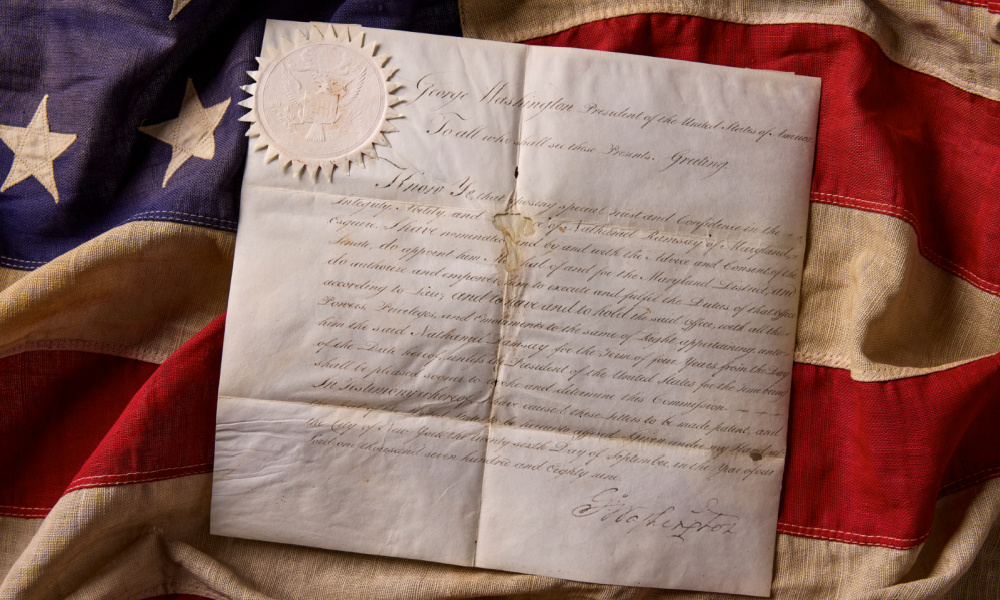 George Washington President of the United States of America
To all who shall see these Presents. Greeting
Know Ye, that reposing special Trust and Confidence in the
Integrity, Ability, and of Nathaniel Ramsay of Maryland
Esquire, I have nominated and by and with the Advice and Consent of the
Senate, do appoint him Marshal of and for the Maryland District, and
do authorize and empower him to execute and fulfil the Duties of that office
according to Law; and to have and to hold the said office, with all the
Powers, Privileges, and Emoluments to the same of Right appertaining unto
him the said Nathaniel Ramsay for the Term of four Years from the Day
of the Date hereof, unless the President of the United States for the time being
shall be pleased sooner to revoke and determine this Commission.
In Testimony whereof I have caused these letters to be made patent, and
to be hereunto affixed Given under my Hand
the City of New York the twenty sixth Day of September, in the Year of our
Lord one thousand seven hundred and Eighty nine
G Washington